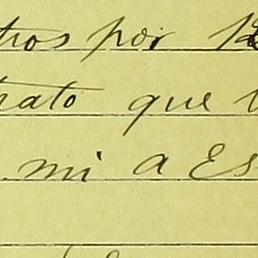 tros por
rato que
mi a Es